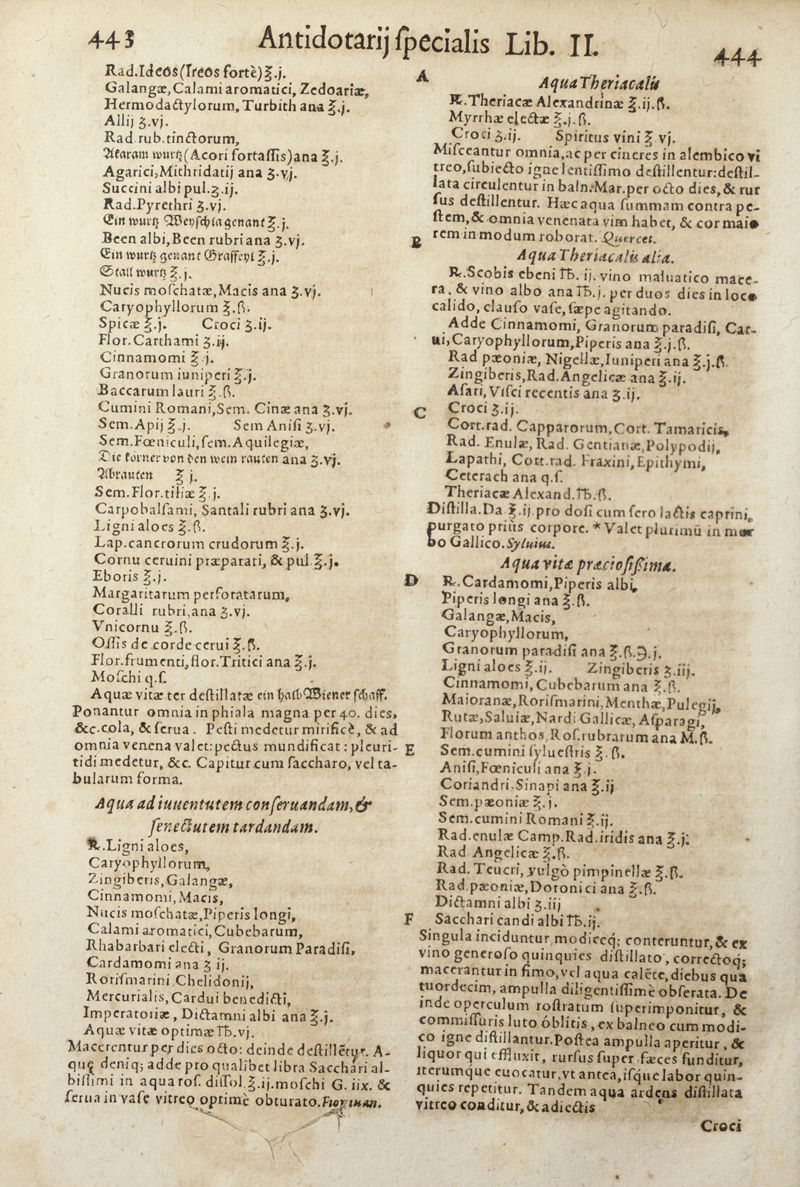 443
Antidotarij ſpecialis Lib. II.
444
Rad.Ideos(Ireos forte)ʒ.j.
Galangæ,Calami aromatici, Zedoariæ,
Hermodactylorum, Turbith ana ℥.j.
Allij ʒ.vj.
Rad.rub.tinctorum,
(Acori fortaſſis)ana ℥.j.
Agarici,Mithridatij ana ʒ.vj.
Succini albi pul.ʒ.ij.
Rad.Pyrethri ʒ.vj.
Ein wurtz genant ℥.j.
Been albi,Been rubri ana ʒ.vj.
Ein wurtz genant ℥.j.
wurtz ℥.j.
Nucis moſchatæ,Macis ana ʒ.vj.
Caryophyllorum ℥.ß.
Spicæ ℥.j. Croci ʒ.ij.
Flor.Carthami ʒ.ij.
Cinnamomi ℥.j.
Granorum iuniperi ℥.j.
Baccarum lauri ℥.ß.
Cumini Romani,Sem. Cinæ ana ʒ.vj.
Sem.Apij ℥.j. Sem Aniſi ʒ.vj.
Sem.Fœniculi,ſem.Aquilegiæ,
Die körner von den wein rauten ana ʒ.vj.
Abrauten ℥ j.
Sem.Flor.tiliæ ℥ j.
Carpobalſami, Santali rubri ana ʒ.vj.
Ligni aloes ℥.ß.
Lap.cancrorum crudorum ℥.j.
Cornu ceruini præparati, & pul.℥.j.
Eboris ℥.j.
Margaritarum perforatarum,
Coralli rubri,ana ʒ.vj.
Vnicornu ℥.ß.
Oſſis de corde cerui ℥.ß.
Flor.frumenti,flor.Tritici ana ℥.j.
Moſchi q.ſ.
Aquæ vitæ ter deſtillatæ ein halb Wiener ſchaff.
Ponantur omnia in phiala magna per 40. dies,
&c.cola, & ſerua. Peſti medetur mirificè, & ad
omnia venena valet:pectus mundificat: pleuri-
tidi medetur, &c. Capitur cum ſaccharo, vel ta-
bularum forma.
Aqua ad iuuentutem conſeruandam,&
ſenectutem tardandam.
℞.Ligni aloes,
Caryophyllorum,
Zingiberis,Galangæ,
Cinnamomi,Macis,
Nucis moſchatæ,Piperis longi,
Calami aromatici,Cubebarum,
Rhabarbari electi, Granorum Paradiſi,
Cardamomi ana ʒ ij.
Roriſmarini Chelidonij,
Mercurialis,Cardui benedicti,
Imperatoriæ, Dictamni albi ana ℥.j.
Aquæ vitæ optimæ ℔.vj.
Macerentur per dies octo: deinde deſtilletur. A-
quę deniq; adde pro qualibet libra Sacchari al-
biſſimi in aqua roſ. diſſol.℥.ij.moſchi G. iix. &
ſerua in vaſe vitreo optimè obturato.
A
Aqua Theriacalis
℞.Theriacæ Alexandrinæ ℥.ij.ß.
Myrrhæ electæ ℥.j.ß.
Croci ʒ.ij. Spiritus vini ℥ vj.
Miſceantur omnia,ac per cineres in alembico vi
treo,ſubiecto igne lentiſſimo deſtillentur:deſtil-
lata circulentur in baln.Mar.per octo dies,& rur
ſus deſtillentur. Hæc aqua ſummam contra pe-
ſtem,& omnia venenata vim habet, & cor maio
B
rem in modum roborat. Quercet.
Aqua Theriacalis alia.
℞.Scobis ebeni ℔. ij. vino maluatico mace-
ra, & vino albo ana ℔.j.per duos dies in loco
calido, clauſo vaſe,ſæpe agitando.
Adde Cinnamomi, Granorum paradiſi, Car-
ui,Caryophyllorum,Piperis ana ℥.j.ß.
Rad pæoniæ, Nigellæ,Iuniperi ana ℥.j.ß
Zingiberis,Rad.Angelicæ ana ℥.ij.
Aſari,Viſci recentis ana ʒ.ij.
C
Croci ʒ.ij.
Cort.rad. Capparorum,Cort. Tamaricis,
Rad. Enulæ, Rad. Gentianæ,Polypodij,
Lapathi, Cort.rad. Fraxini,Epithymi,
Ceterach ana q.ſ.
Theriacæ Alexand.℔.ß.
Diſtilla.Da ℥.ij.pro doſi cum ſero lactis caprini,
purgato priùs corpore. * Valet plurimũ in mor
bo Gallico.Syluius.
Aqua vitæ præcioſiſſima.
D
℞.Cardamomi,Piperis albi,
Piperis longi ana ℥.ß.
Galangæ,Macis,
Caryophyllorum,
Granorum paradiſi ana ℥.ß.℈.j.
Ligni aloes ℥.ij. Zingiberis ʒ.iij.
Cinnamomi,Cubebarum ana ℥.ß.
Maioranæ,Roriſmarini,Menthæ,Pulegij,
Rutæ,Saluiæ,Nardi Gallicæ, Aſparagi,
Florum anthos,Roſ.rubrarum ana M.ß.
E
Sem.cumini ſylueſtris ℥.ß.
Aniſi,Fœniculi ana ℥.j.
Coriandri,Sinapi ana ℥.ij
Sem.pæoniæ ℥.j.
Sem.cumini Romani ℥.ij.
Rad.enulæ Camp.Rad.iridis ana ℥.j.
Rad Angelicæ ℥.ß.
Rad. Teucri, vulgò pimpinellæ ℥.ß.
Rad.pæoniæ,Doronici ana ℥.ß.
Dictamni albi ʒ.iij
F
Sacchari candi albi ℔.ij.
Singula inciduntur modiceq; conteruntur,& ex
vino generoſo quinquies diſtillato, correctoq;
macerantur in fimo,vel aqua calēte,diebus qua
tuordecim, ampulla diligentiſſimè obſerata. De
inde operculum roſtratum ſuperimponitur, &
commiſſuris luto oblitis, ex balneo cum modi-
co igne diſtillantur.Poſtea ampulla aperitur, &
liquor qui effluxit, rurſus ſuper fæces funditur,
iterumque euocatur,vt antea,iſque labor quin-
quies repetitur. Tandem aqua ardens diſtillata
vitreo conditur,& adiectis
Croci